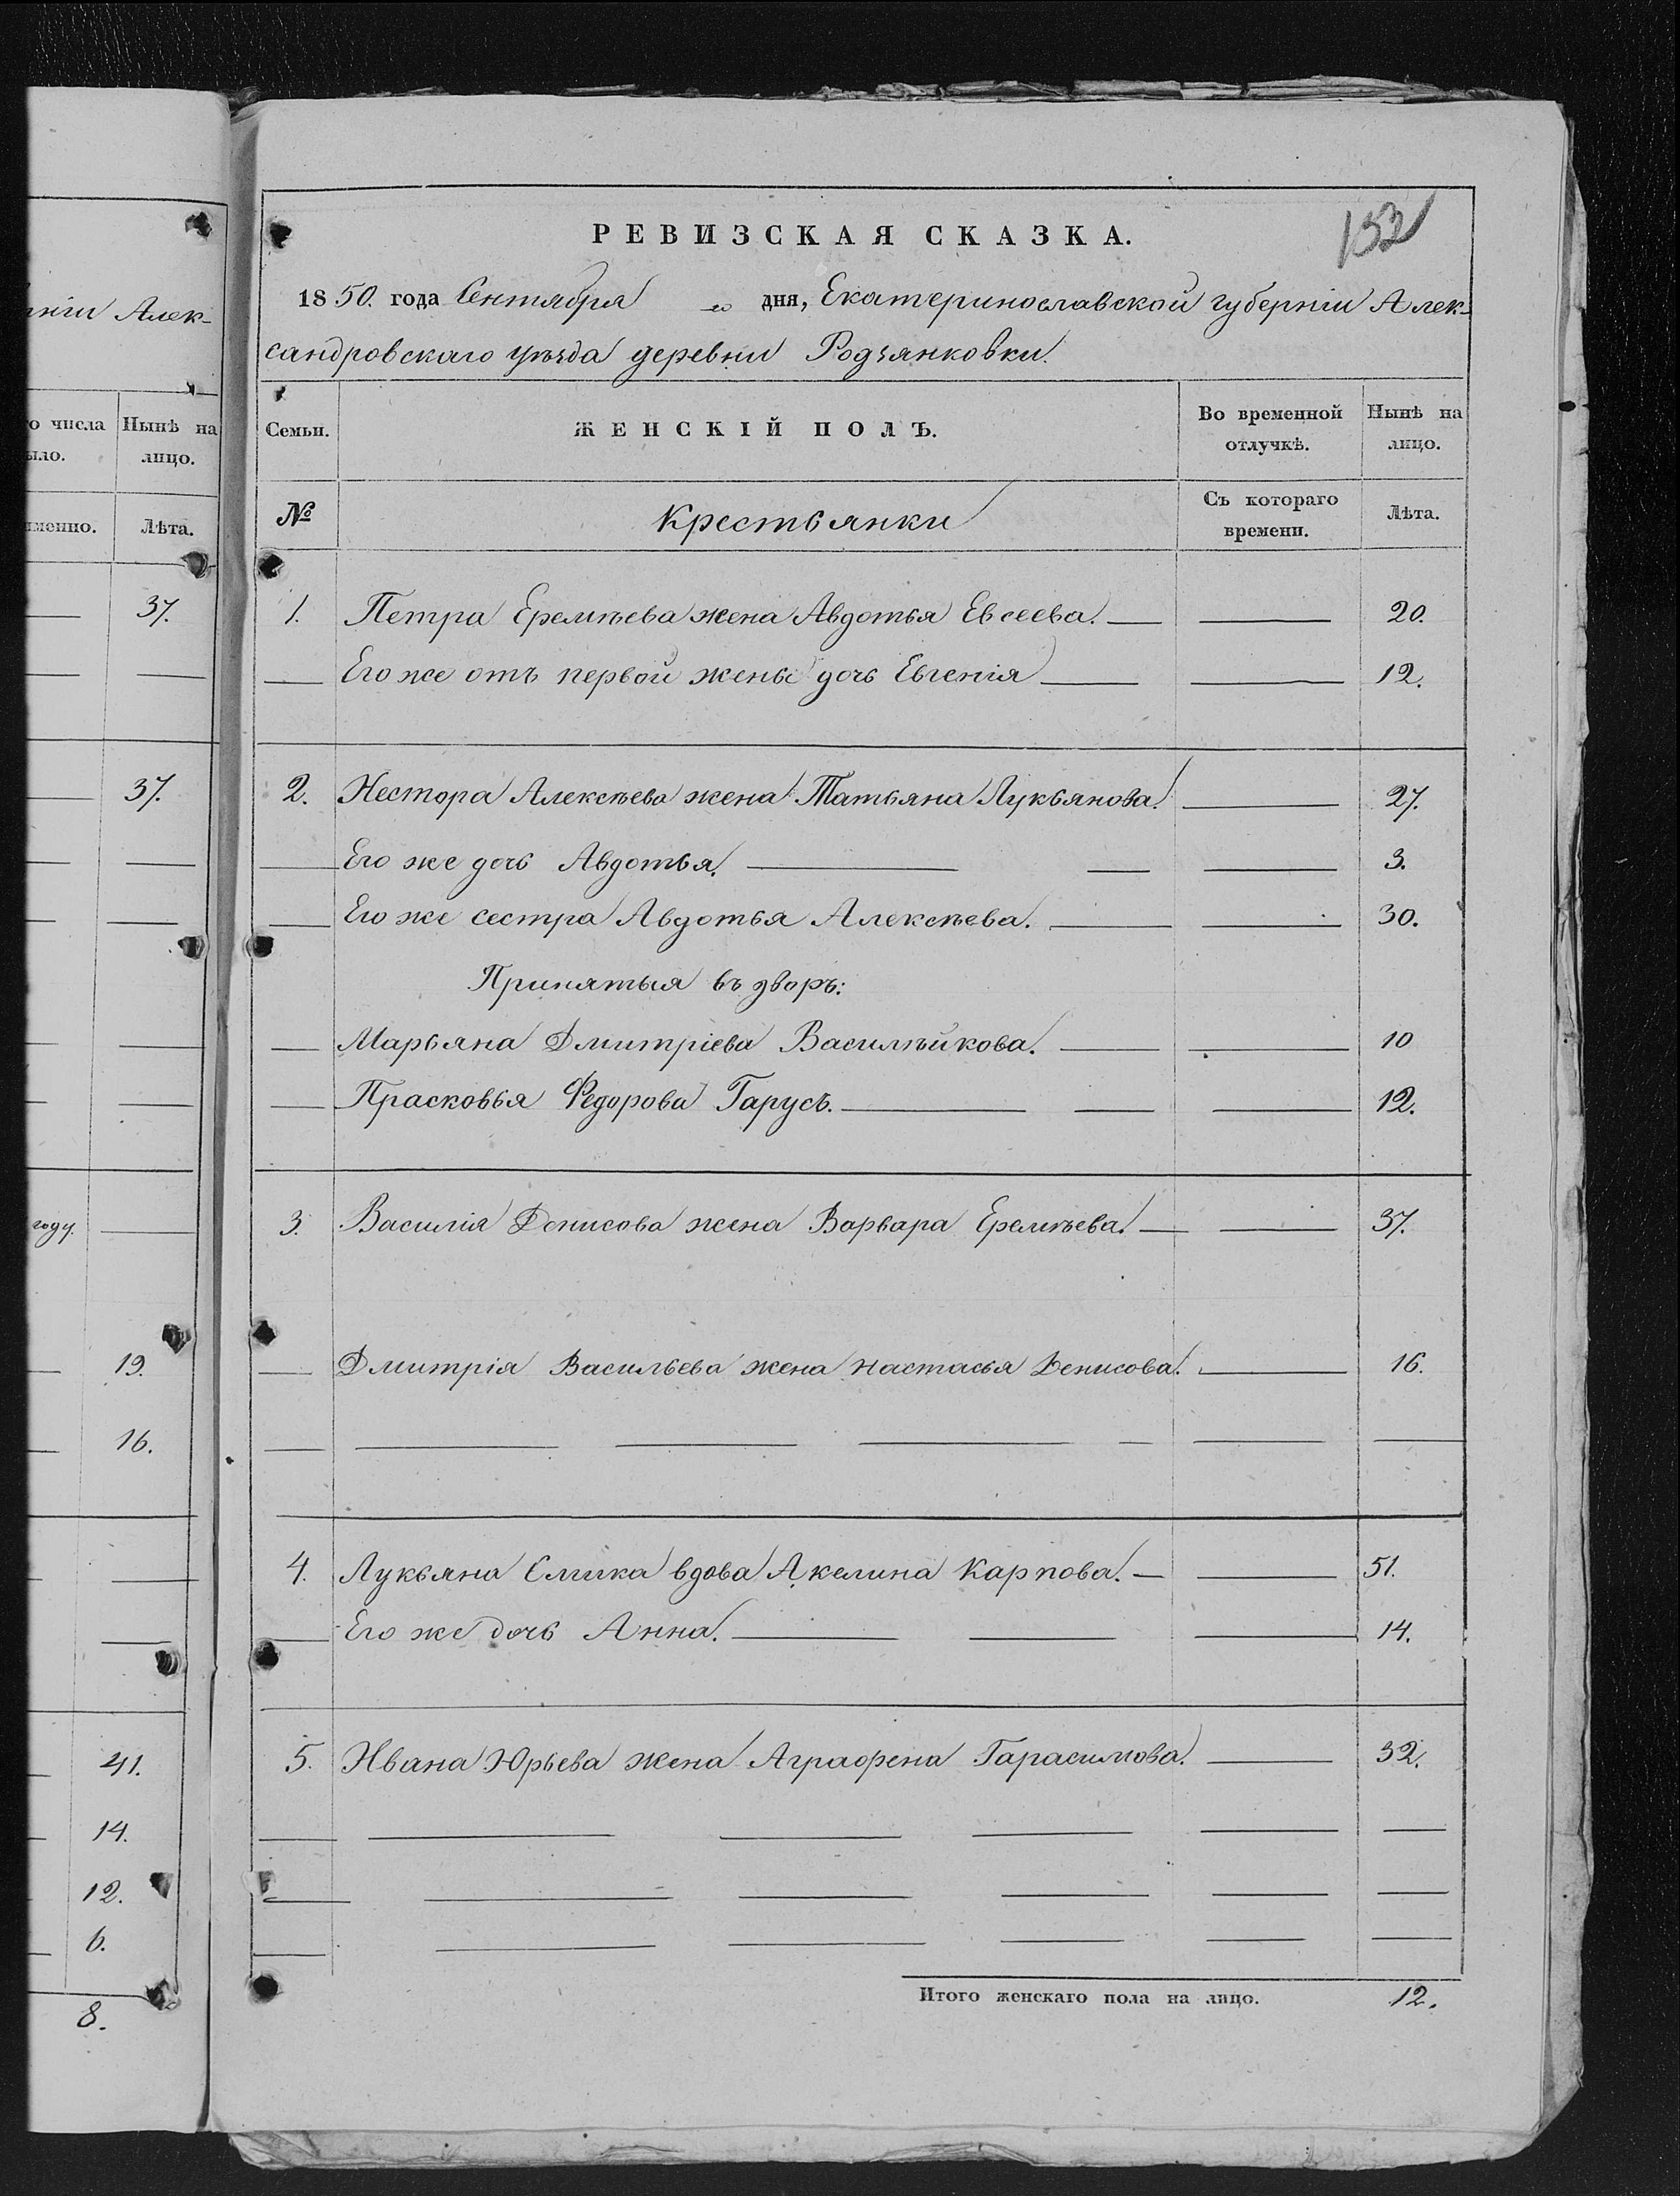 нiи Алек-
о числа Нынѣ на
ыло. лицо.
именно. Лѣта.
37.
37.
году.
19.
16.
41.
14.
12.
6.
8.
РЕВИЗСКАЯ СКАЗКА.
152
1850. года Сентября дня, Екатеринославской губернiи Алек-
сандровскаго уѣзда деревни Родзянковки.
Семьи. ЖЕНСКIЙ ПОЛЪ. Во временной отлучкѣ. Нынѣ на лицо.
№ Крестьянки Съ котораго времени. Лѣта.
1. Петра Еремѣева жена Авдотья Евсеева. — — 20.
— Его же отъ первой жены дочь Евгенiя — — 12.
2. Нестора Алексѣева жена Татьяна Лукьянова. — 27.
— Его же дочь Авдотья. — — — 3.
— Его же сестра Авдотья Алексѣева. — — 30.
Принятыя въ дворъ:
— Марьяна Дмитрiева Василѣйкова. — — 10
— Прасковья Федорова Гарусъ. — — — 12.
3. Василiя Денисова жена Варвара Еремѣева. — — 37.
— Дмитрiя Васильева жена Настасья Денисова. — 16.
4. Лукьяна Смика вдова Акелина Карпова. — — 51.
— Его же дочь Анна. — — — 14.
5. Ивана Юрьева жена Аграфена Гарасимова. — 32.
Итого женскаго пола на лицо. 12.